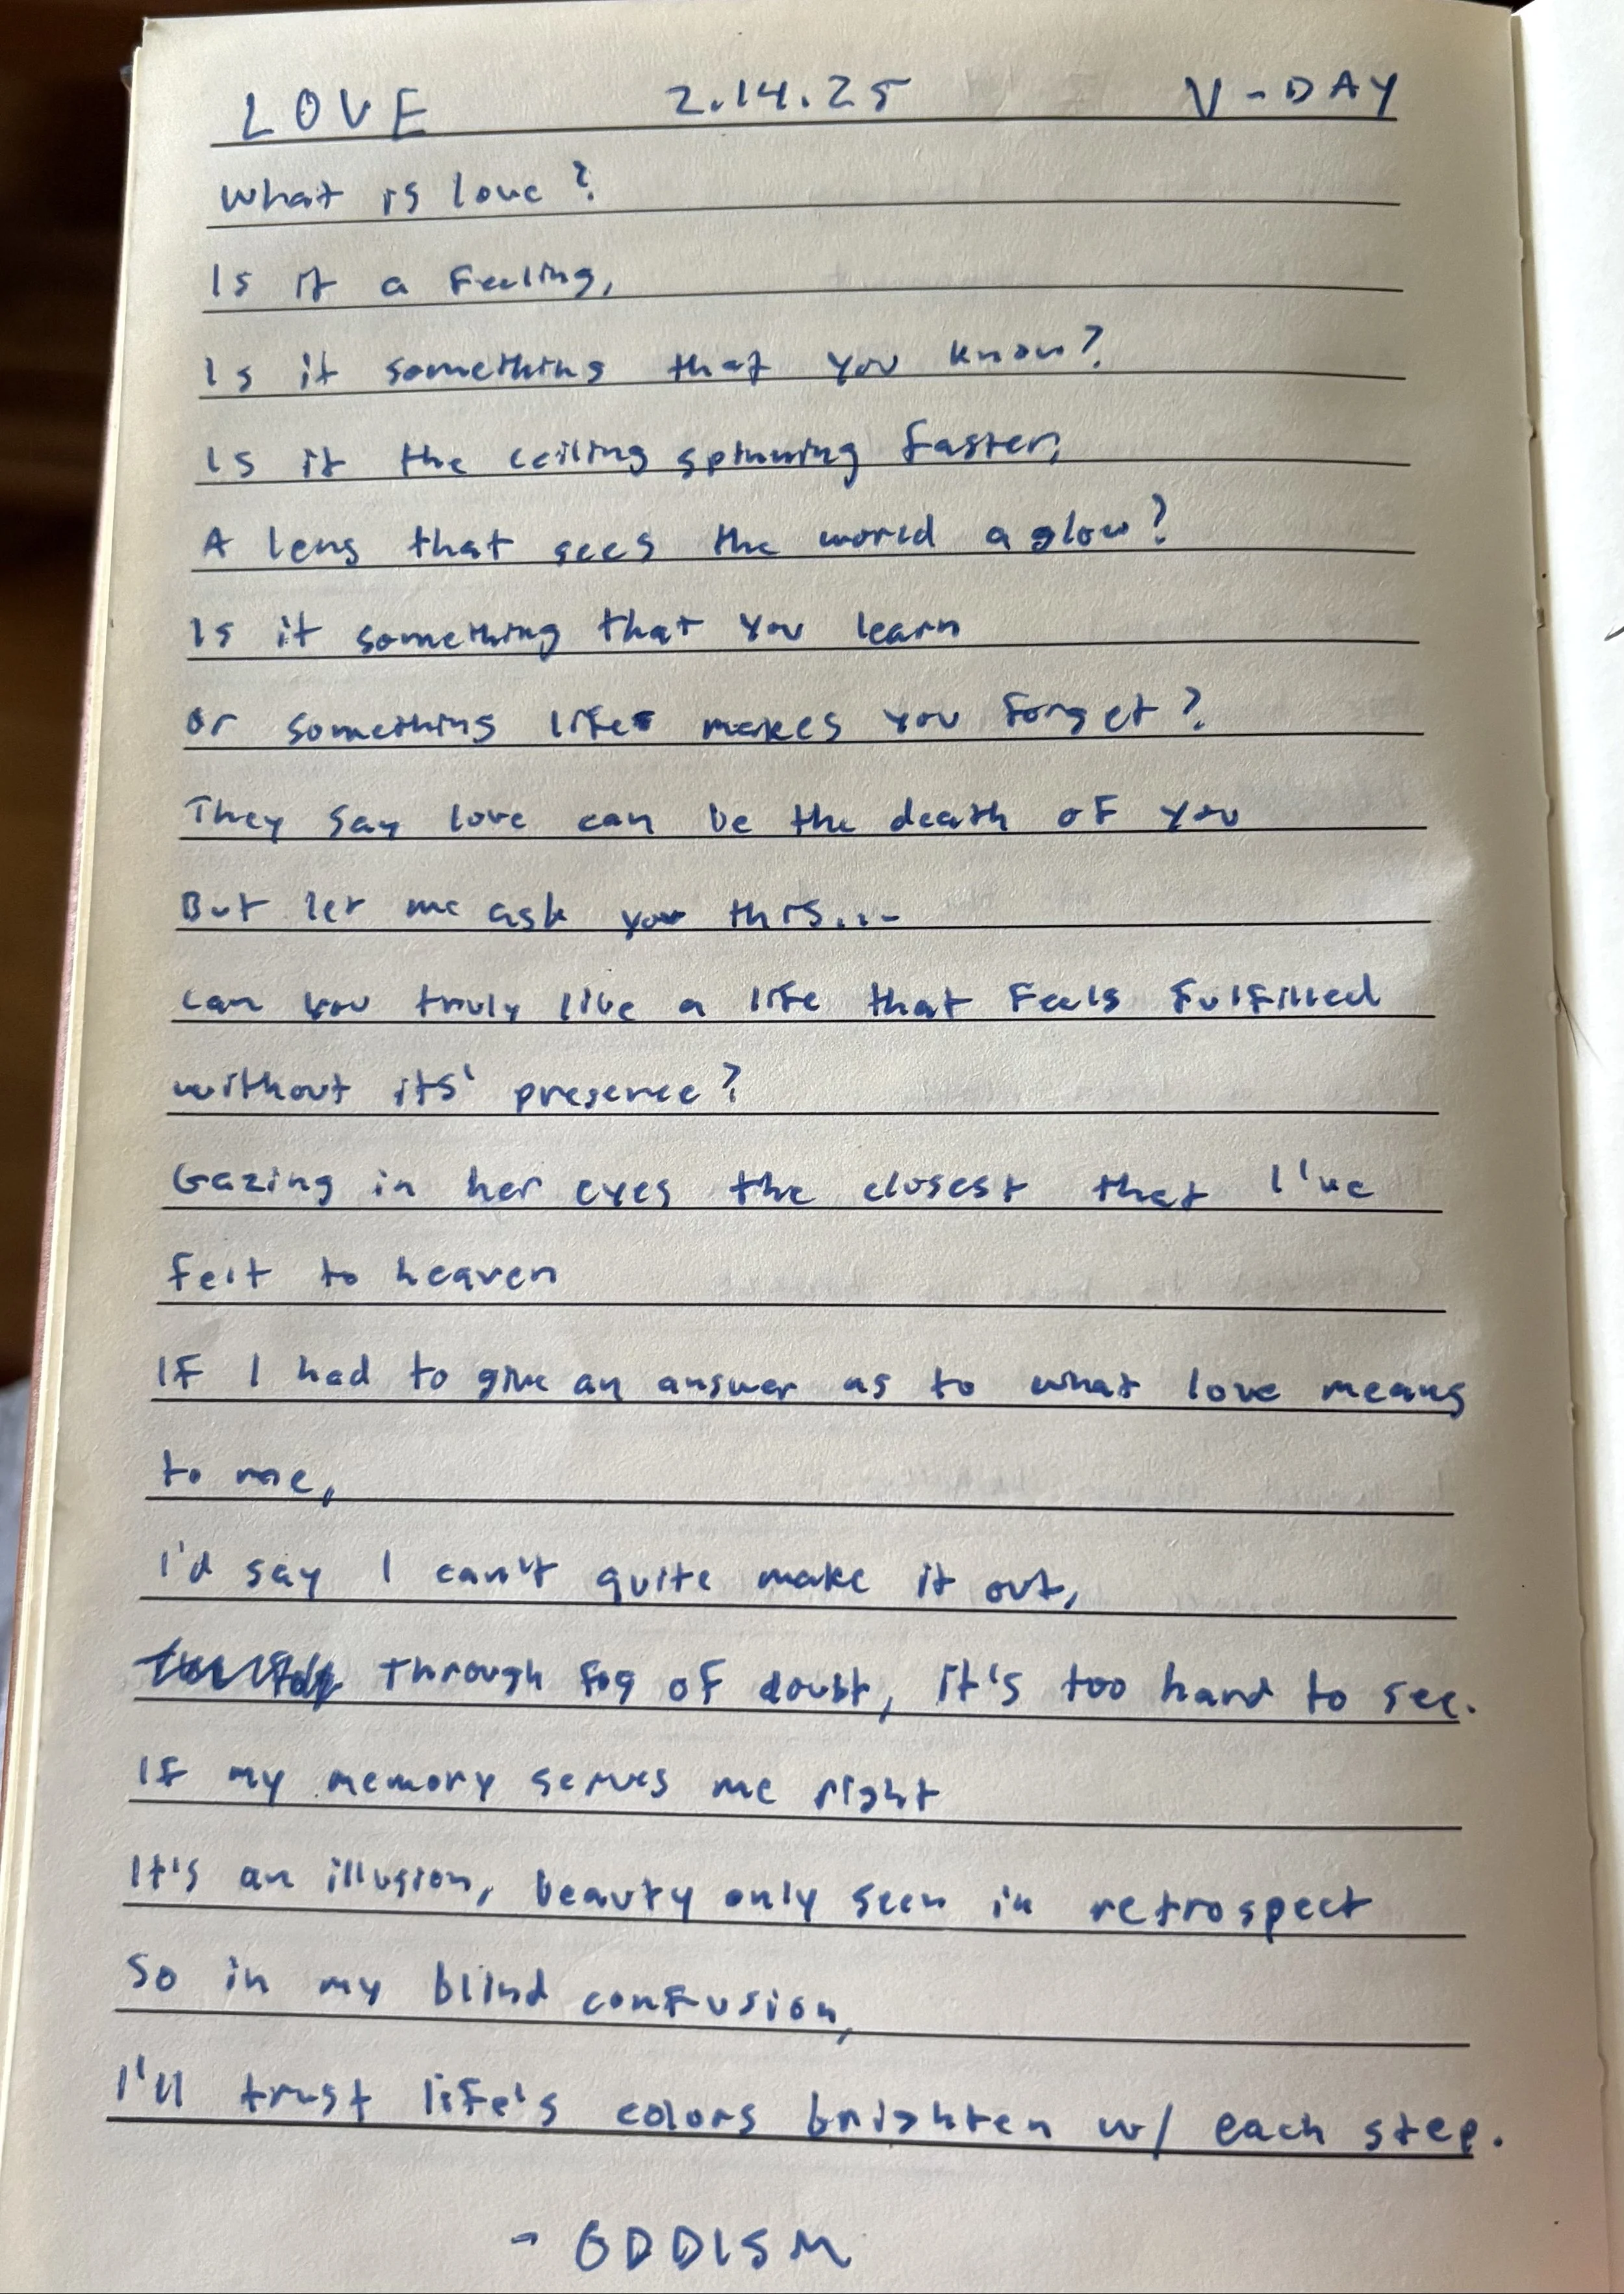 LOVE 2.14.25 V-DAY
What is love?
Is it a feeling,
Is it something that you know?
Is it the ceiling spinning faster,
A lens that sees the world a glow?
Is it something that you learn
Or something life makes you forget?
They say love can be the death of you
But let me ask you this...
Can you truly live a life that feels fulfilled
without its' presence?
Gazing in her eyes the closest that I've
felt to heaven
If I had to give an answer as to what love means
to me,
I'd say I can't quite make it out,
Through fog of doubt, it's too hard to see.
If my memory serves me right
It's an illusion, beauty only seen in retrospect
So in my blind confusion,
I'll trust life's colors brighten w/ each step.
- ODDISM